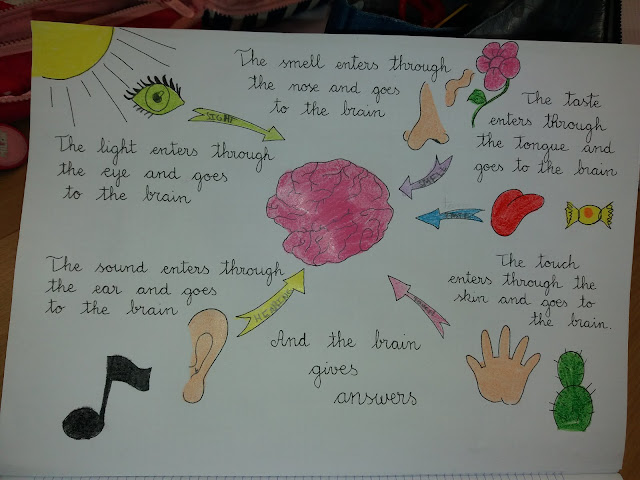 The smell enters through
the nose and goes
to the brain
The taste
enters through
the tongue and
goes to the brain
SIGHT
The light enters through
the eye and goes
to the brain
SMELL
TASTE
The sound enters through
the ear and goes
to the brain
HEARING
TOUCH
The touch
enters through the
skin and goes to
the brain.
And the brain
gives
answers